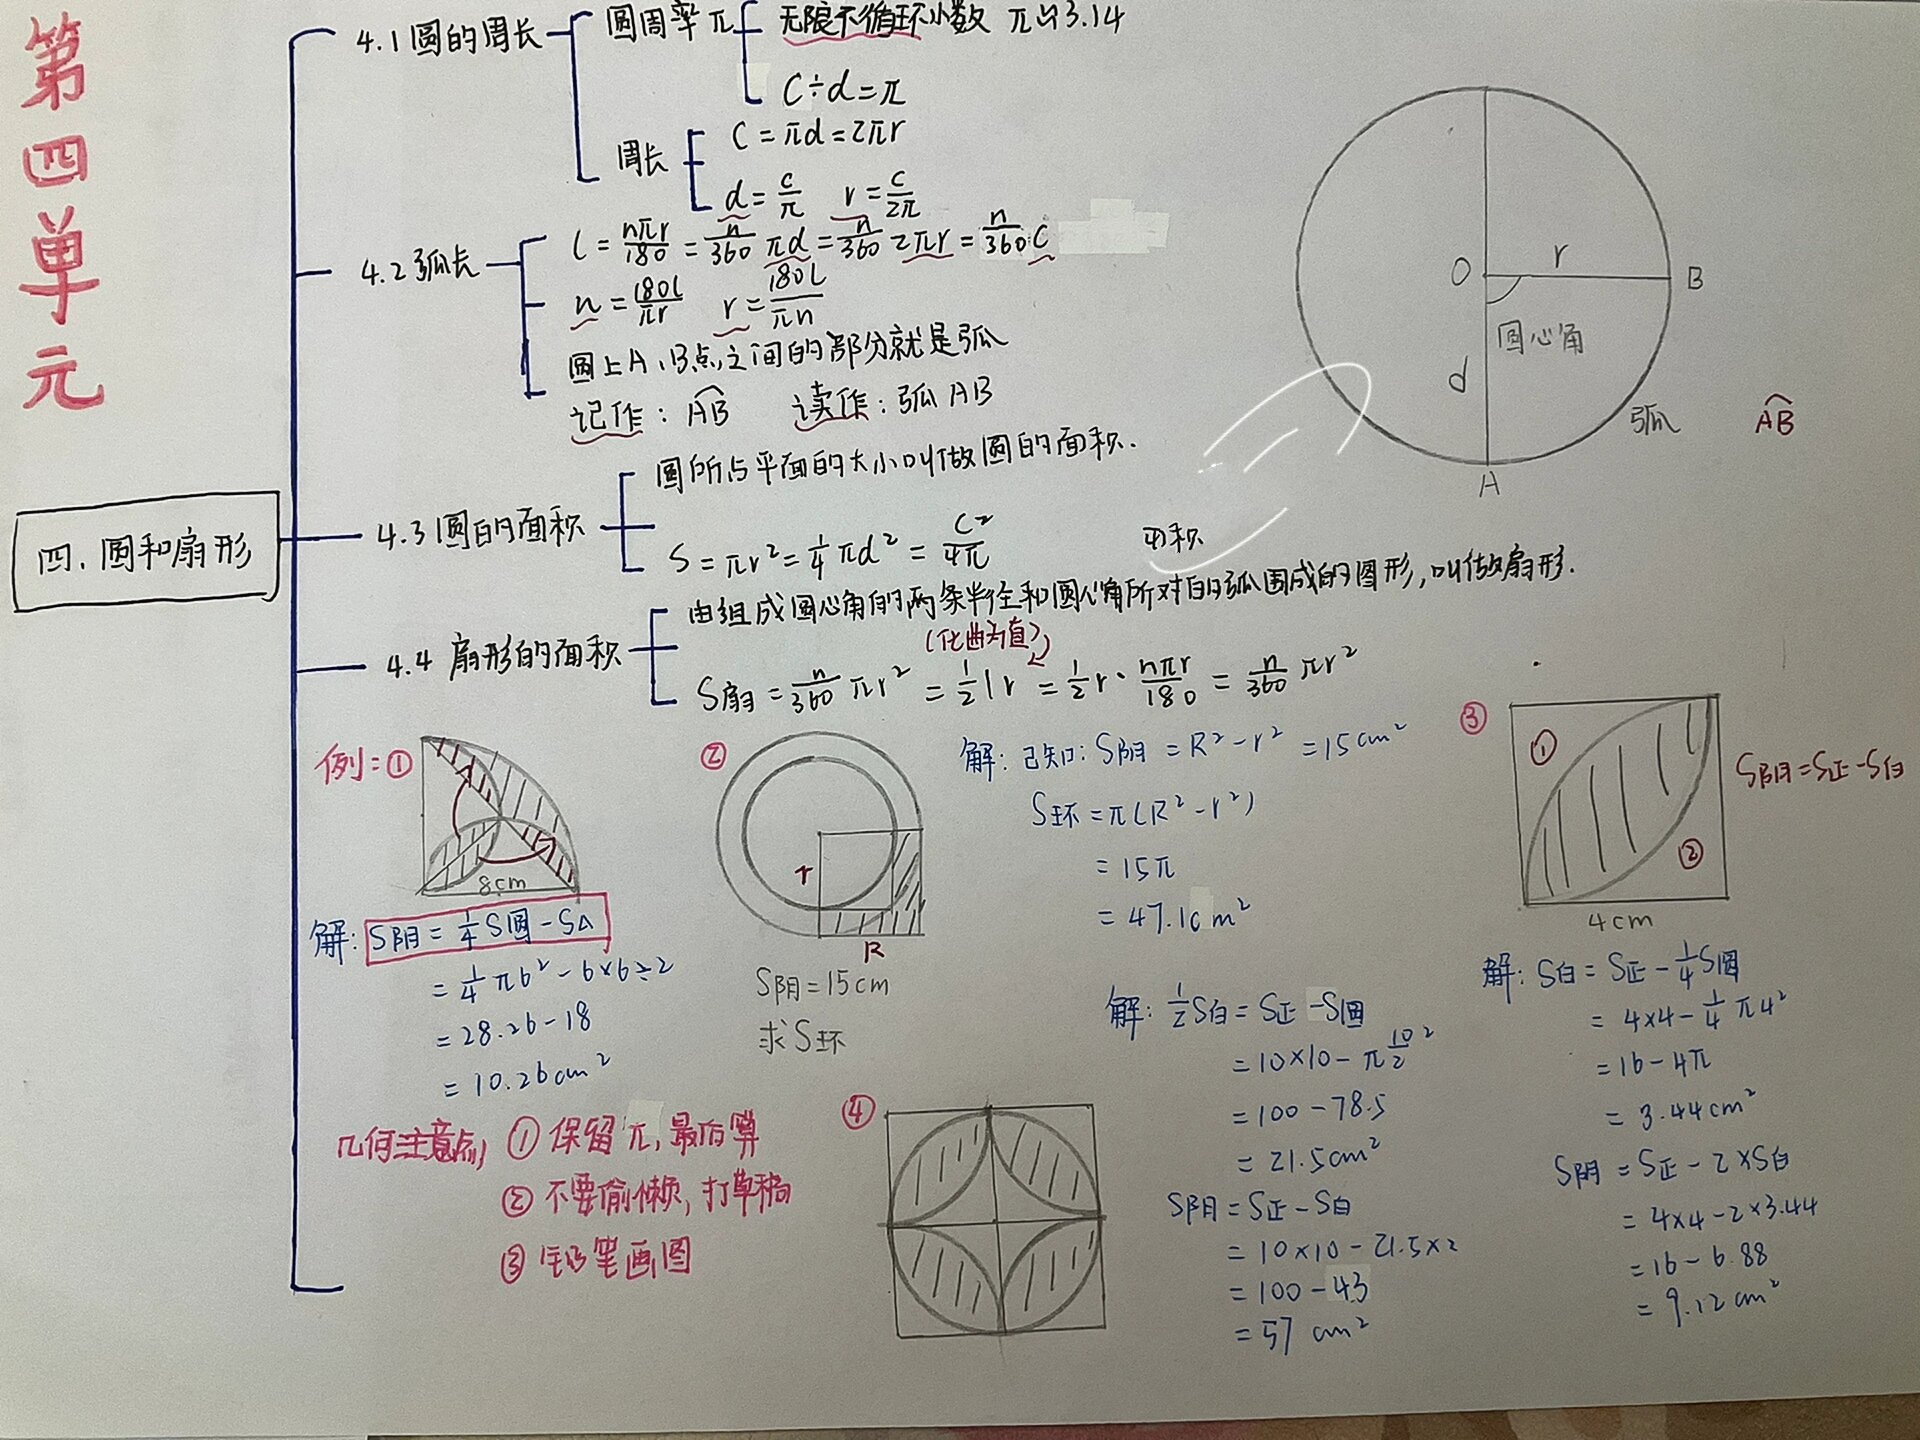 第四单元
四.圆和扇形
4.1圆的周长
圆周率π
无限不循环小数 π≈3.14
C÷d=π
周长
C=πd=2πr
d=c/π r=c/2π
4.2弧长
l=nπr/180=n/360 πd=n/360 2πr=n/360 C
n=180l/πr r=180l/πn
圆上A、B点之间的部分就是弧
记作:A͡B 读作:弧AB
4.3圆的面积
圆所占平面的大小叫做圆的面积.
S=πr²=1/4 πd²=C²/4π
面积
4.4 扇形的面积
由组成圆心角的两条半径和圆心角所对的弧围成的图形,叫做扇形.
(化曲为直)
S扇=n/360 πr²=1/2 lr=1/2 r·nπr/180=n/360 πr²
O
r
B
圆心角
d
弧
A͡B
A
例:①
8cm
解:S阴=1/4 S圆-S△
=1/4 π6²-6×6÷2
=28.26-18
=10.26cm²
②
r
R
S阴=15cm
求S环
解:已知:S阴=R²-r²=15cm²
S环=π(R²-r²)
=15π
=47.1cm²
③
①
②
4cm
S阴=S正-S白
解:S白=S正-1/4 S圆
=4×4-1/4 π4²
=16-4π
=3.44cm²
S阴=S正-2×S白
=4×4-2×3.44
=16-6.88
=9.12cm²
④
解:1/2 S白=S正-S圆
=10×10-π10/2²
=100-78.5
=21.5cm²
S阴=S正-S白
=10×10-21.5×2
=100-43
=57 cm²
几何注意点
①保留π,最后算
②不要偷懒,打草稿
③铅笔画图